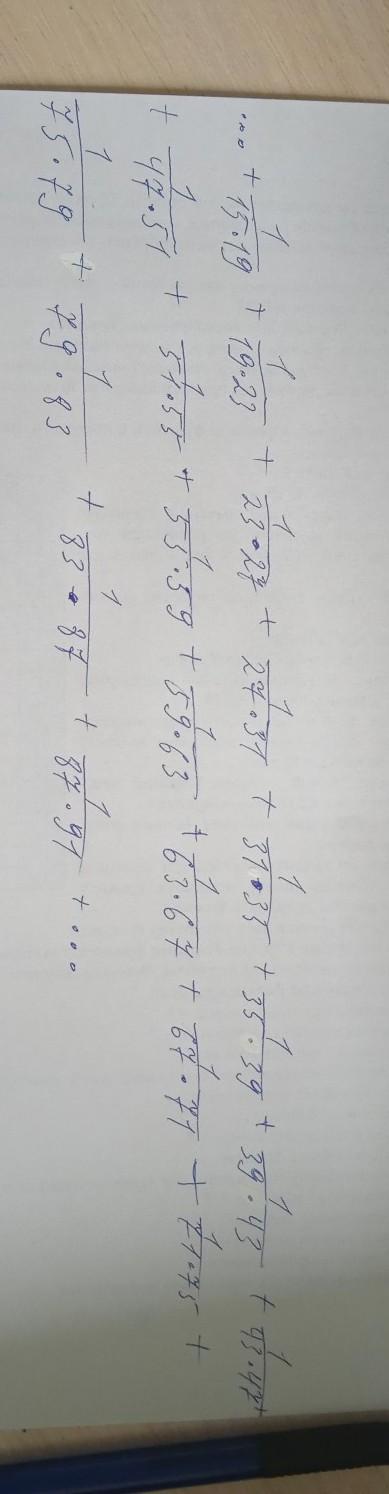 ... + 1/15·19 + 1/19·23 + 1/23·27 + 1/27·31 + 1/31·35 + 1/35·39 + 1/39·43 + 1/43·47 +
+ 1/47·51 + 1/51·55 + 1/55·59 + 1/59·63 + 1/63·67 + 1/67·71 + 1/71·75 +
1/75·79 + 1/79·83 + 1/83·87 + 1/87·91 + ...